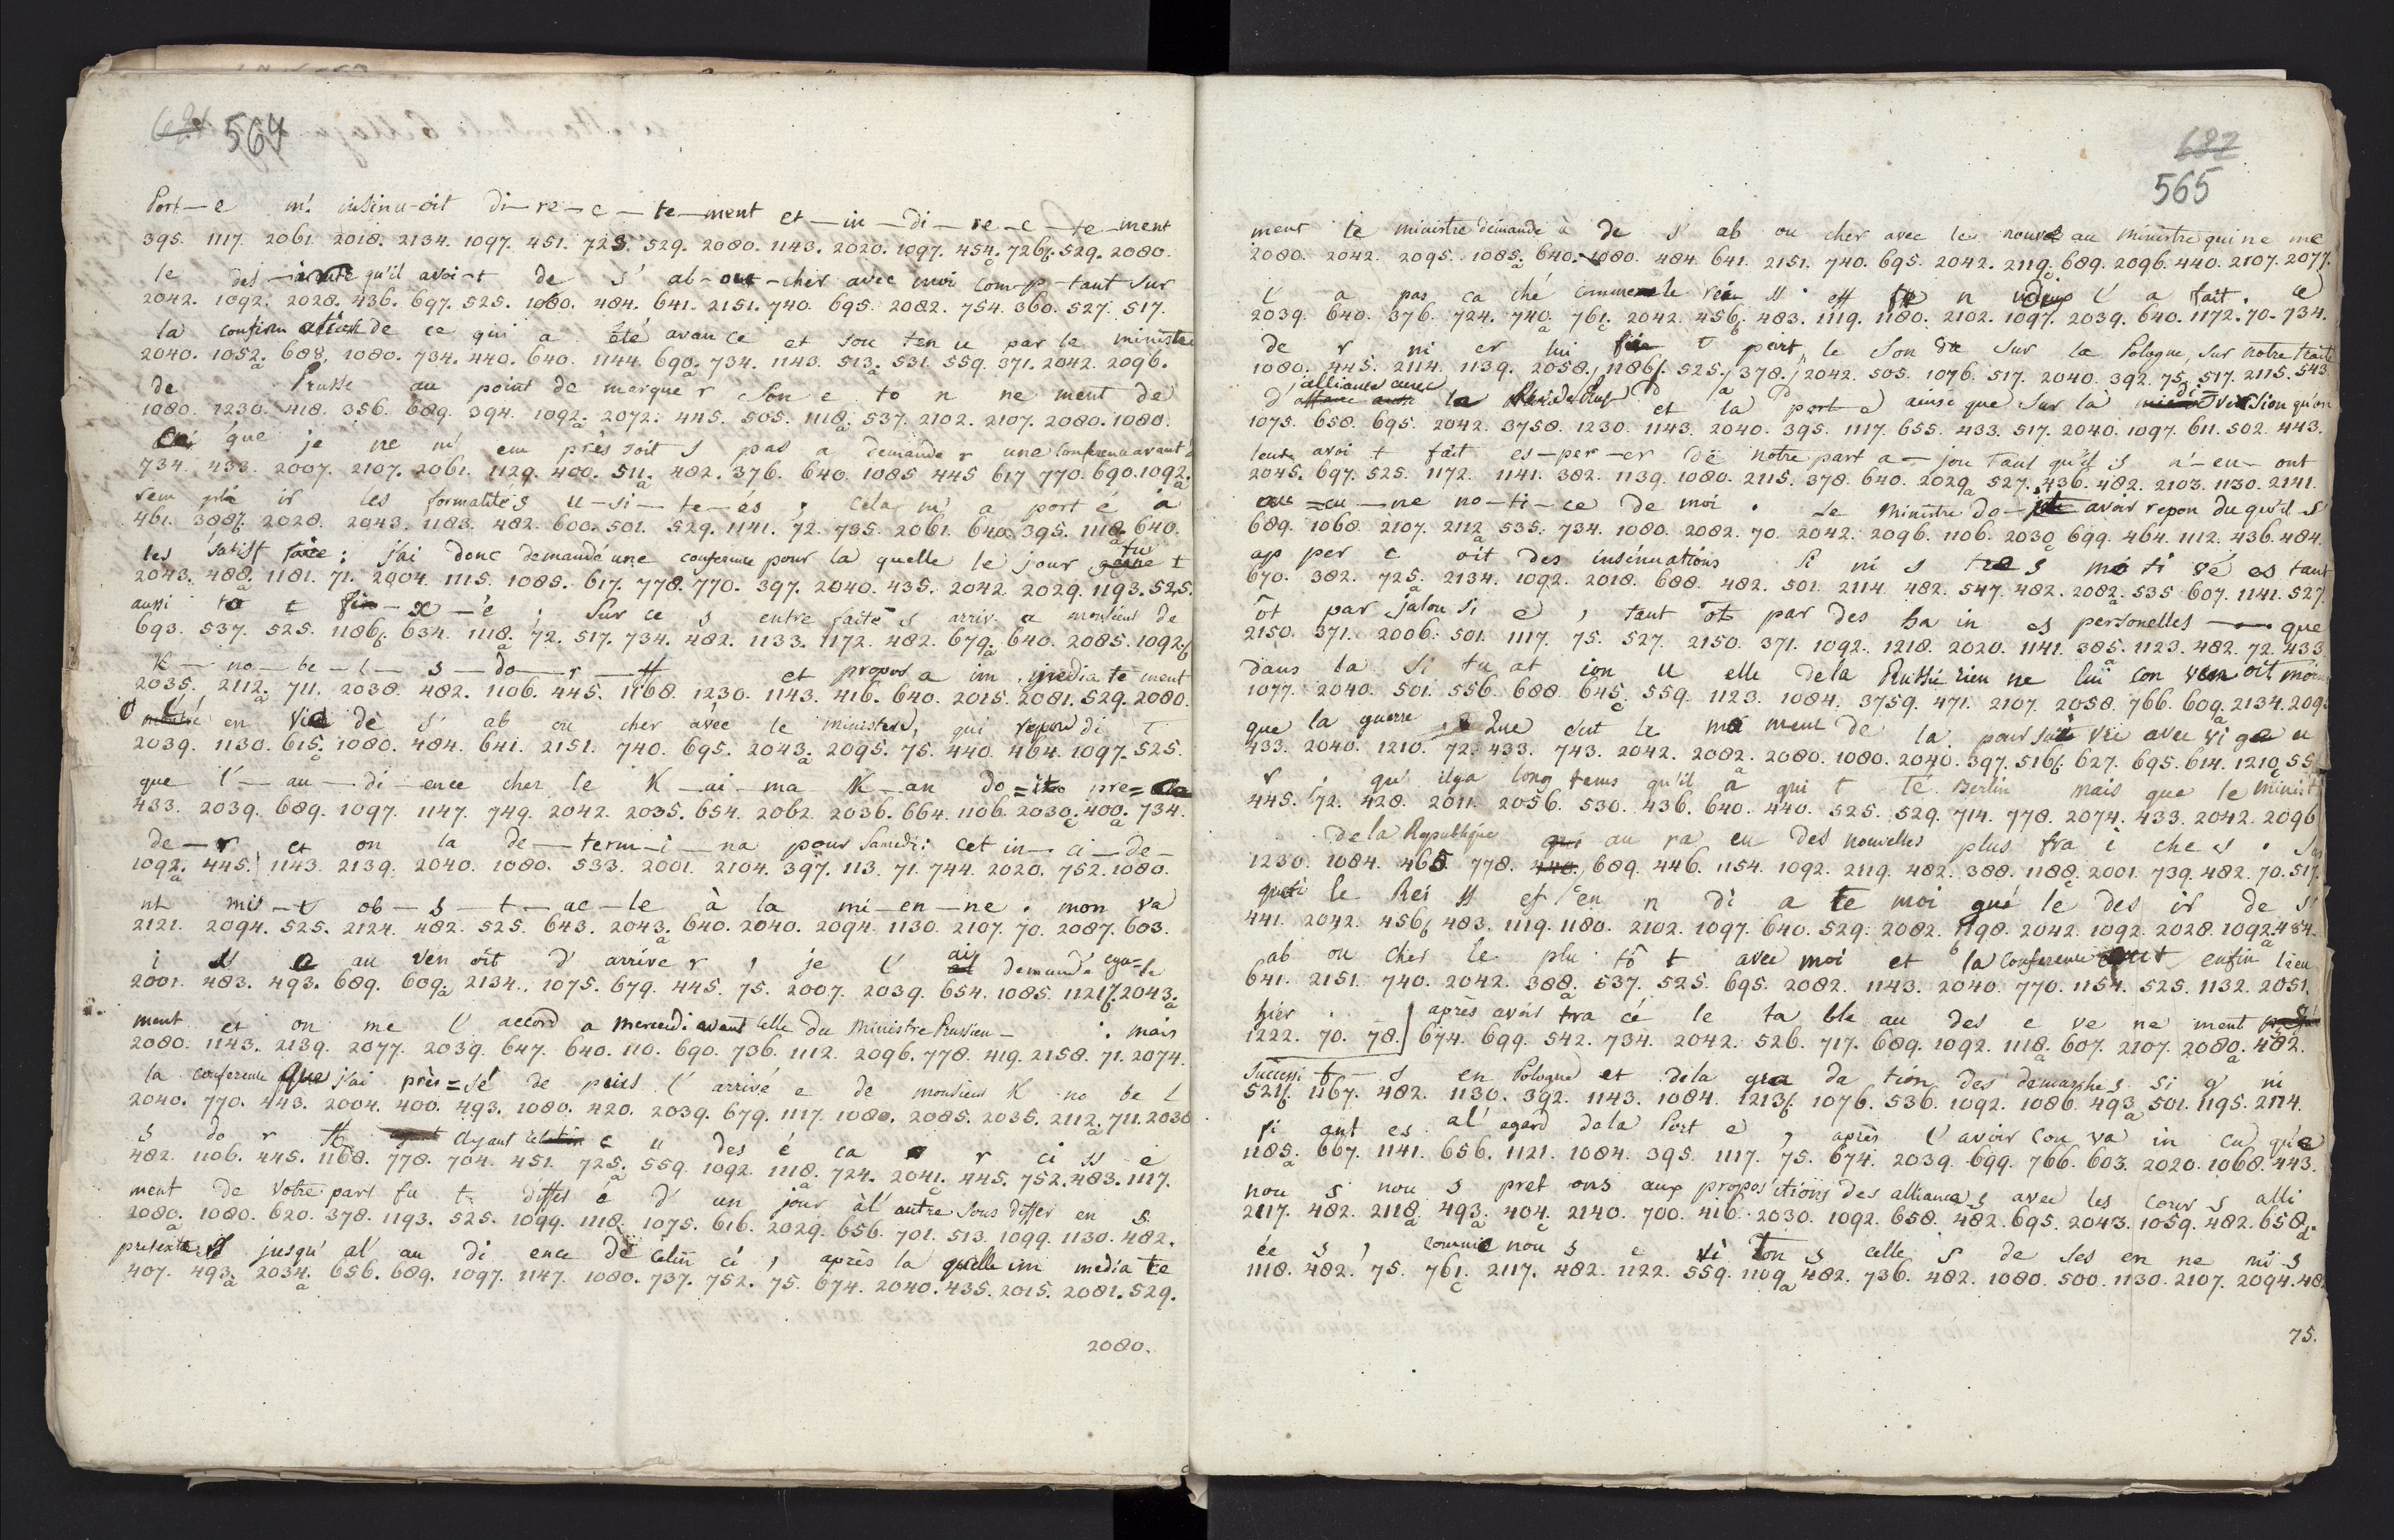 564
Port-e m' insinu-oit di-re-c-te-ment et-in-di-re-c-te-ment
395. 1117. 2061. 2018. 2134. 1097. 451. 725. 529. 2080. 1143. 2020. 1097. 454. 726. 529. 2080.
le des- qu'il avoi-t de s' ab-ou-cher avec moi com-p-tant sur
2042. 1092. 2028. 436. 697. 525. 1080. 484. 641. 2151. 740. 695. 2082. 754. 360. 527. 517.
la confirm ation de ce qui a été avan ce et sou ten u par le ministre
2040. 1052. 688. 1080. 734. 440. 640. 1144. 690. 734. 1143. 513. 531. 559. 371. 2042. 2096.
de Prusse au point de marque r son e to n ne ment de
1080. 1230. 418. 356. 689. 394. 1092. 2072. 445. 505. 1118. 537. 2102. 2107. 2080. 1080.
que je ne m' em près soit s pas a demande r une conference avant
734. 433. 2007. 2107. 2061. 1129. 400. 511. 482. 376. 640. 1085 445 617 770. 690. 1092.
rem pla ir les formalité s u-si-te-es ; cela m' a port é a
461. 388. 2028. 2043. 1183. 482. 600. 501. 529. 1141. 72. 735. 2061. 640. 395. 1118. 640.
les satisf : j'ai donc demandé une conference pour la quelle le jour fu t
2043. 488. 1181. 71. 2004. 1115. 1085. 617. 778. 770. 397. 2040. 435. 2042. 2029. 1193. 525.
aussi to t fix-x-é ; sur ce s entre faite s arriv a monsieur de
693. 537. 525. 1186. 634. 1118. 72. 517. 734. 482. 1133. 1172. 482. 679. 640. 2085. 1092.
K-no-be-l-s-do-r-ff et propos a im media te ment
2035. 2112. 711. 2038. 482. 1106. 445. 1168. 1230. 1143. 416. 640. 2015. 2081. 529. 2080.
l' en vie de s' ab ou cher avec le ministere, qui repon di t
2039. 1130. 615. 1080. 484. 641. 2151. 740. 695. 2043. 2095. 75. 440. 464. 1097. 525.
que l'-au-di-ence chez le K-ai-ma K-an do=it pre=ce
433. 2039. 689. 1097. 1147. 749. 2042. 2035. 654. 2062. 2036. 664. 1106. 2030. 400. 734.
de-r et on la de-term-i-na pour samedi: cet in-ci-de-
1092. 445. 1143. 2139. 2040. 1080. 533. 2001. 2104. 397. 113. 71. 744. 2020. 752. 1080.
nt mis-t ob-s-t-ac-le à la mi-en-ne . mon va
2121. 2094. 525. 2124. 482. 525. 643. 2043. 640. 2040. 2094. 1130. 2107. 70. 2087. 603.
i ss e au ven oit d' arrive r , je l' ai demandé ega=le
2001. 483. 493. 689. 609. 2134. 1075. 679. 445. 75. 2007. 2039. 654. 1085. 1121. 2043.
ment et on me l' accord a mercredi avant celle du ministre Prussien- : mais
2080. 1143. 2139. 2077. 2039. 647. 640. 110. 690. 736. 1112. 2096. 778. 419. 2158. 71. 2074.
la conference que j'ai près=sé de puis l' arrivé e de monsieur K no be l
2040. 770. 443. 2004. 400. 493. 1080. 420. 2039. 679. 1117. 1080. 2085. 2035. 2112. 711. 2038
s do r ff ayant c u des é ca r ci ss e
482. 1106. 445. 1168. 778. 704. 451. 725. 559. 1092. 1118. 724. 2041. 445. 752. 483. 1117.
ment de votre part fu t differ é d' un jour à l' autre sous differ en s
2080. 1080. 620. 378. 1193. 525. 1099. 1118. 1075. 616. 2029. 656. 701. 513. 1099. 1130. 482.
pretexte s jusqu' al' au di ence de celui ci , après la quelle im media te
407. 493. 2034. 656. 689. 1097. 1147. 1080. 737. 752. 75. 674. 2040. 435. 2015. 2081. 529.
2080.
682
565
ment le ministre demande a de s' ab ou cher avec le nouve au ministre qui ne me
2080. 2042. 2095. 1085. 640. 1080. 484. 641. 2151. 740. 695. 2042. 2119. 689. 2096. 440. 2107. 2077.
l' a pas ca ché comme le rei ss eff n di l' a fait . ce
2039. 640. 376. 724. 740. 761. 2042. 456. 483. 1119. 1180. 2102. 1097. 2039. 640. 1172. 70. 734.
de r ni er lui t part, le son da sur la Pologne, sur notre traité
1080. 445. 2114. 1139. 2058. 1186. 525. 378. 2042. 505. 1076. 517. 2040. 392. 75. 517. 2115. 543.
d' alliance avec la et la port e ainsi que sur la di version qu'on
1075. 658. 695. 2042. 3758. 1230. 1143. 2040. 395. 1117. 655. 433. 517. 2040. 1097. 611. 502. 443.
leur avoi t fait es-per-er de notre part a-jou tant qu'il s n'-en-ont
2045. 697. 525. 1172. 1141. 382. 1139. 1080. 2115. 378. 640. 2029. 527. 436. 482. 2103. 1130. 2141.
au=cu-ne no-ti-ce de moi . Le ministre do-it avoir repon du qu'il s'
689. 1068. 2107. 2112. 535. 734. 1080. 2082. 70. 2042. 2096. 1106. 2030. 699. 464. 1112. 436. 484.
ap per c oit des insinuations si ni s tre s mo ti vé es tant
670. 382. 725. 2134. 1092. 2018. 688. 482. 501. 2114. 482. 547. 482. 2082. 535 607. 1141. 527.
ôt par jalou si e , tant ôt par des ha in es personelles - que
2150. 371. 2006. 501. 1117. 75. 527. 2150. 371. 1092. 1218. 2020. 1141. 385. 1123. 482. 72. 433.
dans la si tu at ion u elle de la Russie rien ne lui con ven oit moins
1077. 2040. 501. 556. 688. 645. 559. 1123. 1084. 3759. 471. 2107. 2058. 766. 609. 2134. 209
que la guerre , Que c'est le mo ment de la pour sui vre avec vi gu eu
433. 2040. 1210. 72. 433. 743. 2042. 2082. 2080. 1080. 2040. 397. 516. 627. 695. 614. 1210. 55
r , qu' il y a long tems qu'il a qui t té Berlin mais que le minist
445. 72. 428. 2011. 2056. 530. 436. 640. 440. 525. 529. 714. 778. 2074. 433. 2042. 2096
de la Republique au ra eu des nouvelles plus fra i che s .
1230. 1084. 465 778. 440. 689. 446. 1154. 1092. 2119. 482. 388. 1188. 2001. 739. 482. 70. 517.
quoi le Rei ss ef en n di a te moi gné le des ir de s'
441. 2042. 456. 483. 1119. 1180. 2102. 1097. 640. 529. 2082. 1198. 2042. 1092. 2028. 1092. 484.
ab ou cher le plu tô t avec moi et la conference eut enfin lieu
641. 2151. 740. 2042. 388. 537. 525. 695. 2082. 1143. 2040. 770. 1154. 525. 1132. 2051.
hier . après avoir tra cé le ta ble au des e ve ne ment
1222. 70. 78. 674. 699. 542. 734. 2042. 526. 717. 689. 1092. 1118. 607. 2107. 2080. 482.
successi f-s en Pologne et de la gra da tion des demarche s si g ni
521. 1167. 482. 1130. 392. 1143. 1084. 1213. 1076. 536. 1092. 1086. 493. 501. 1195. 2114.
fi ant es al' egard de la Port e , après l' avoir con va in cu que
1185. 667. 1141. 656. 1121. 1084. 395. 1117. 75. 674. 2039. 699. 766. 603. 2020. 1068. 443.
nou s nou s pret ons aux propos itions des alliance s avec les cour s alli
2117. 482. 2118. 493. 404. 2140. 700. 416. 2030. 1092. 658. 482. 695. 2043. 1059. 482. 658.
ée s , comme nou s e vi ton s celle s de ses en ne mi s
1118. 482. 75. 761. 2117. 482. 1122. 559. 1109. 482. 736. 482. 1080. 500. 1130. 2107. 2094. 48
75.